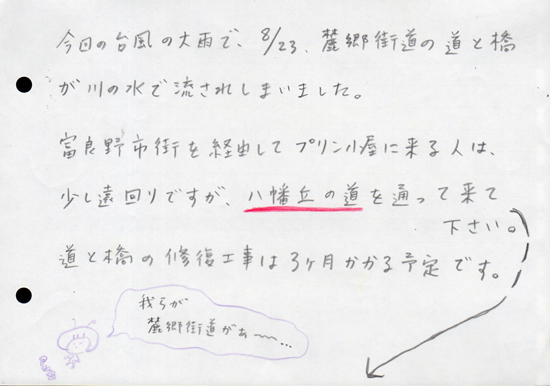 今回の台風の大雨で、8/23、麓郷街道の道と橋
が川の水で流されしまいました。
富良野市街を経由してプリン小屋に来る人は、
少し遠回りですが、八幡丘の道を通って来て
下さい。
道と橋の修復工事は3ヶ月かかる予定です。
我らが
麓郷街道がぁ〜〜…